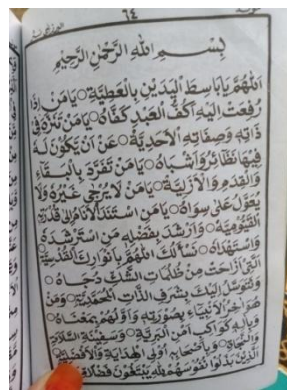 ٦٤
بِسْمِ اللهِ الرَّحْمٰنِ الرَّحِيْمِ
اَللّٰهُمَّ يَا بَاسِطَ الْيَدَيْنِ بِالْعَطِيَّةِ ○ يَا مَنْ إِذَا
رُفِعَتْ اِلَيْهِ اَكُفُّ الْعَبْدِ كَفَاهُ ○ يَا مَنْ تَنَزَّهَ فِيْ
ذَاتِهِ وَصِفَاتِهِ الْاَحَدِيَّةِ ○ عَنْ اَنْ يَكُوْنَ لَهُ
فِيْهَا نَظَائِرُ وَاَشْبَاهُ ○ يَا مَنْ تَفَرَّدَ بِالْبَقَاءِ
وَالْقِدَمِ وَالْاَزَلِيَّةِ ○ يَا مَنْ لَا يُرْجٰى غَيْرُهُ وَلَا
يُعَوَّلُ عَلٰى سِوَاهُ ○ يَا مَنِ اسْتَنَدَ الْاَنَامُ اِلٰى قُدْرَتِهِ
الْقَيُّوْمِيَّةِ ○ وَاَرْشَدَ بِفَضْلِهِ مَنِ اسْتَرْشَدَهُ
وَاسْتَهْدَاهُ ○ نَسْأَلُكَ اللّٰهُمَّ بِاَنْوَارِكَ الْقُدْسِيَّةِ
الَّتِيْ اَزَاحَتْ مِنْ ظُلُمَاتِ الشَّكِّ دُجَاهُ ○
وَنَتَوَسَّلُ اِلَيْكَ بِشَرَفِ الذَّاتِ الْمُحَمَّدِيَّةِ ○ وَمَنْ
هُوَ اٰخِرُ الْاَنْبِيَاءِ بِصُوْرَتِهِ وَاَوَّلُهُمْ بِمَعْنَاهُ ○
وَبِاٰلِهِ كَوَاكِبِ اَمْنِ الْبَرِيَّةِ ○ وَسَفِيْنَةِ السَّلَامَةِ
وَالنَّجَاةِ ○ وَبِاَصْحَابِهِ اُولِى الْهِدَايَةِ وَالْاَفْضَلِيَّةِ ○
الَّذِيْنَ بَذَلُوْا نُفُوْسَهُمْ لِلّٰهِ يَبْتَغُوْنَ فَضْلًا